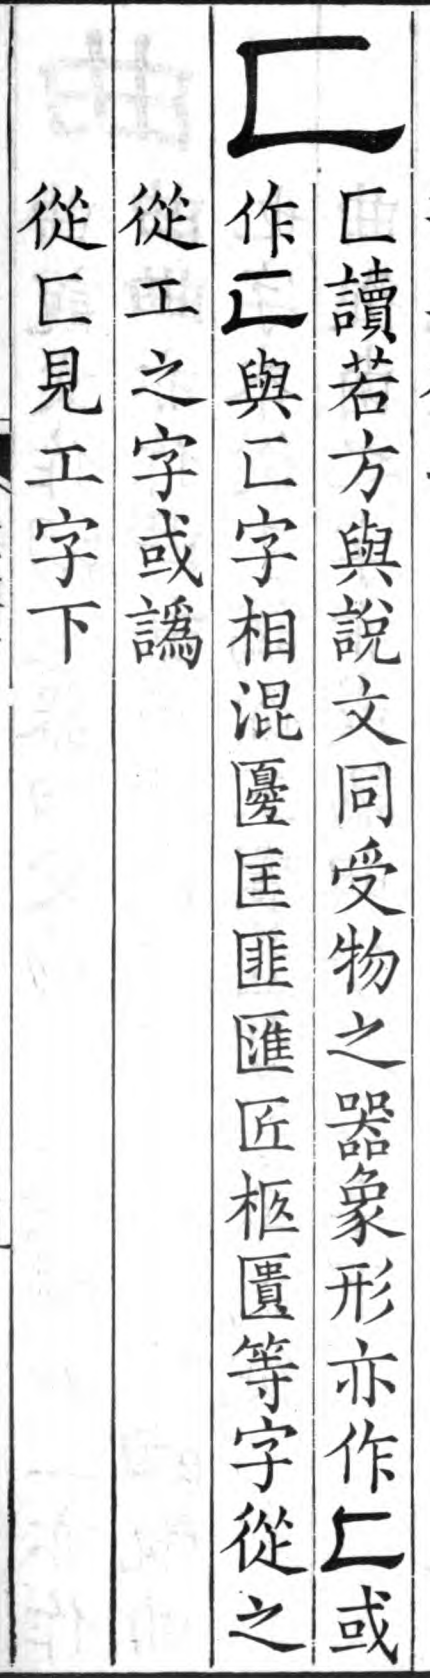 匚
匚讀若方與說文同受物之器象形亦作匚或
作匚與匸字相混匡匪匯匠柩匱等字從之
從工之字或譌
從匚見工字下